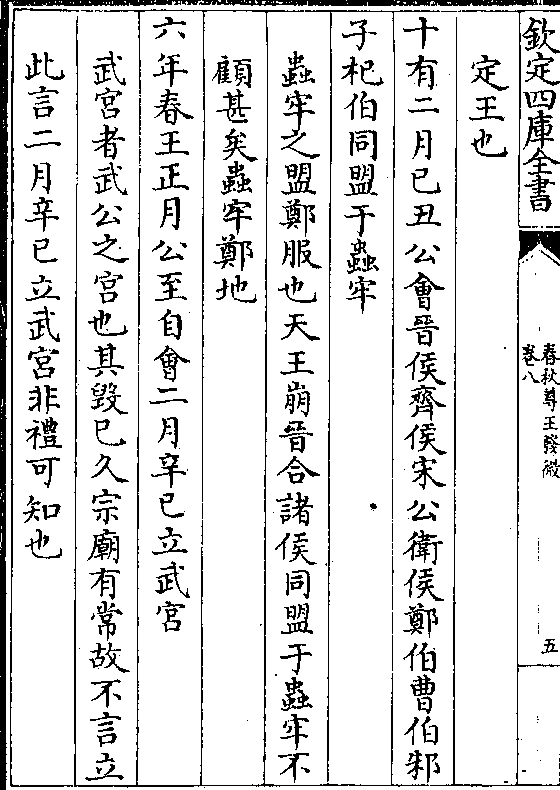 欽定四庫全書
春秋尊王發微
卷八
五
定王也
十有二月己丑公會晉侯齊侯宋公衛侯鄭伯曹伯邾
子杞伯同盟于蟲牢
蟲牢之盟鄭服也天王崩晉合諸侯同盟于蟲牢不
顧甚矣蟲牢鄭地
六年春王正月公至自會二月辛巳立武宮
武宮者武公之宮也其毀已久宗廟有常故不言立
此言二月辛巳立武宮非禮可知也